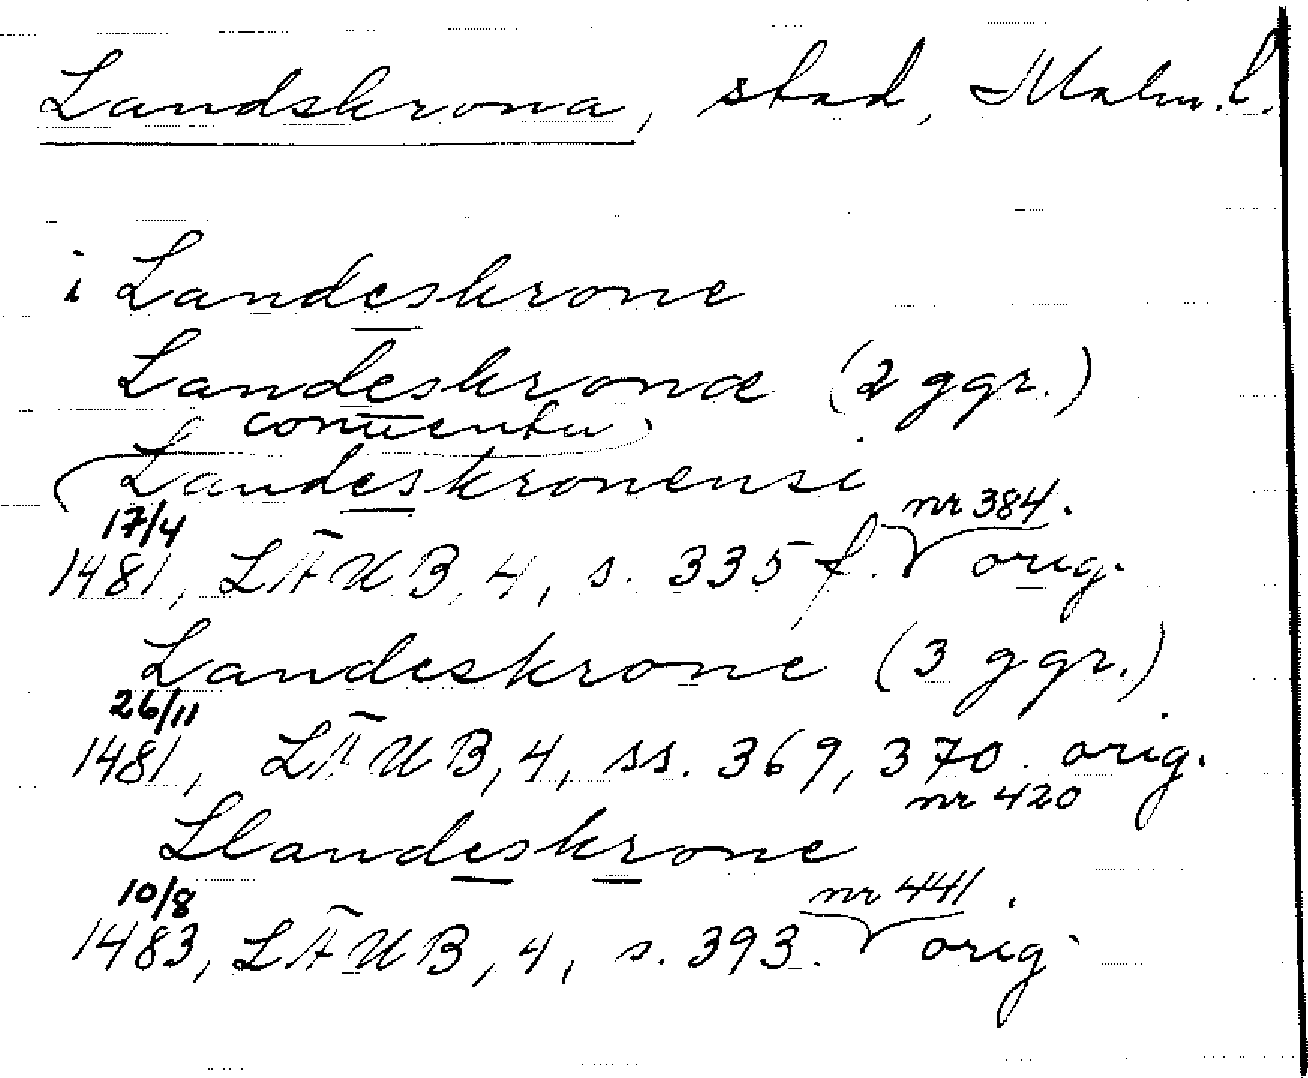 Landskrona, stad, Malm. l.
i Landeskrone
Landeskronæ (2 ggr.)
conuentu
Landeskronensi
17/4 nr 384.
1481, LÄUB, 4, s. 335 f. orig.
Landeskrone (3 ggr.)
26/11
1481, LÄUB, 4, ss. 369, 370. orig.
nr 420
Llandeskrone
10/8 nr 441.
1483, LÄUB, 4, s. 393. orig